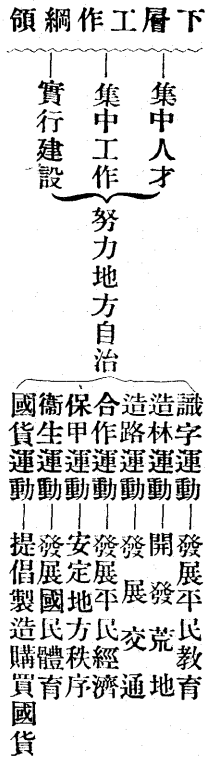 下層工作綱領
集中人才
集中工作
實行建設
努力地方自治
識字運動—發展平民教育
造林運動—開發荒地
造路運動—發展交通
合作運動—發展平民經濟
保甲運動—安定地方秩序
衞生運動—發展國民體育
國貨運動—提倡製造購買國貨